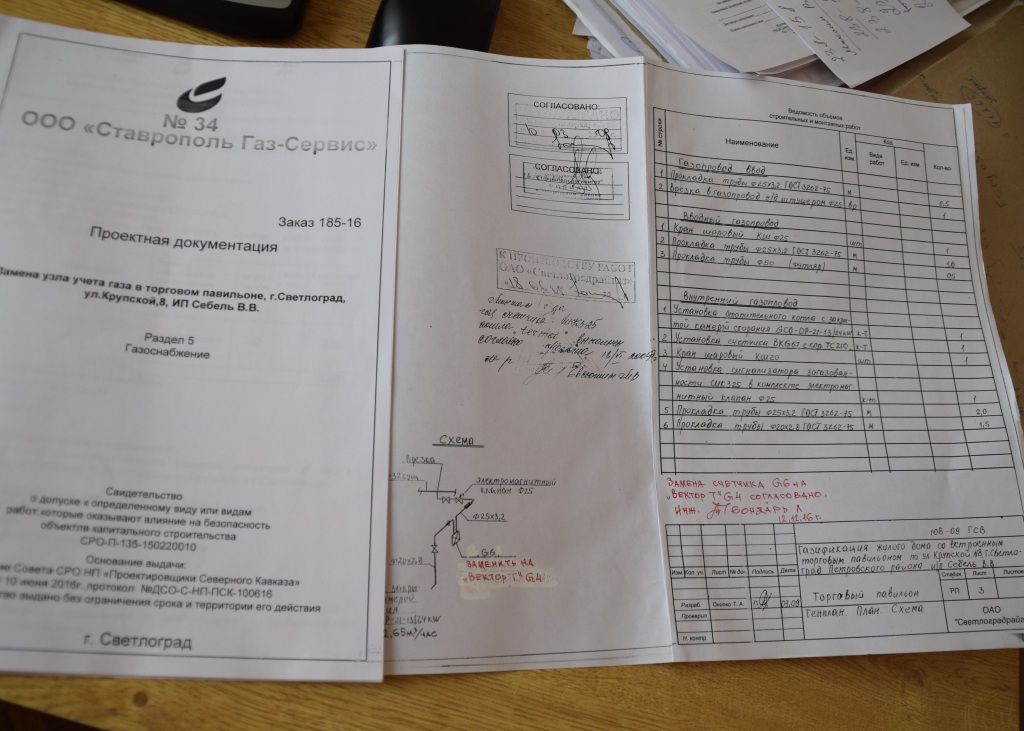 № 34
ООО «Ставрополь Газ-Сервис»
Заказ 185-16
Проектная документация
Замена узла учета газа в торговом павильоне, г.Светлоград,
ул.Крупской,8, ИП Себель В.В.
Раздел 5
Газоснабжение
Свидетельство
о допуске к определенному виду или видам
работ,которые оказывают влияние на безопасность
объектов капитального строительства
СРО-П-135-150220010
Основание выдачи:
Совета СРО НП «Проектировщики Северного Кавказа»
10 июня 2016г.,протокол №ДСО-С-НП-ПСК-100616
выдано без ограничения срока и территории его действия
г. Светлоград
СОГЛАСОВАНО:
СОГЛАСОВАНО:
К ПРОИЗВОДСТВУ РАБОТ
ОАО «Светлоградрайгаз»
Схема
Врезка
электромагнитный
клапан Ф25
Ф25х3,2
Ф20х2,8
G6
ЗАМЕНИТЬ НА
"ВЕКТОР Т" G4
-21-13/24KW
2,65м³/час
Ведомость объемов
строительных и монтажных работ
№ строки
Наименование
Ед. изм.
Код
Вида работ
Ед. изм.
Кол-во
Газопровод ввод
1 Прокладка трубы Ф25х3,2 ГОСТ 3262-75 м 0,5
2 Врезка в газопровод н/д штуцером Ф25 вр 1
Вводный газопровод
1 Кран шаровый КШ Ф25 шт 1
2 Прокладка трубы Ф25х3,2 ГОСТ 3262-75 м 1,0
3 Прокладка трубы Ф50 (футляр) м 0,5
Внутренний газопровод
1 Установка отопительного котла с закры-
той камерой сгорания GCB-DP-21-13/24KW к-т 1
2 Установка счетчика ВКG6Т с кор. ТС210 к-т 1
3 Кран шаровый КШ20 шт 1
4 Установка сигнализатора загазован-
ности СИКЗ25 в комплекте электромаг-
нитный клапан Ф25 к-т 1
5 Прокладка трубы Ф25х3,2 ГОСТ 3262-75 м 2,0
6 Прокладка трубы Ф20х2,8 ГОСТ 3262-75 м 1,5
ЗАМЕНА СЧЕТЧИКА G6 НА
"ВЕКТОР Т" G4 СОГЛАСОВАНО.
ИНЖ. БОНДАРЬ Л.
12.12.16г.
108-09 ГСВ
Газификация жилого дома со встроенным
торговым павильоном по ул. Крупской №8, г.Светло-
град Петровского района и/п Себель В.В
Изм Кол. уч. Лист № до. Подпись Дата
Стадия Лист Листов
РП 3
Торговый павильон
Разраб Т.А. 03.09
Проверил
Н. контр.
Генплан. План. Схема
ОАО
"Светлоградрайгаз